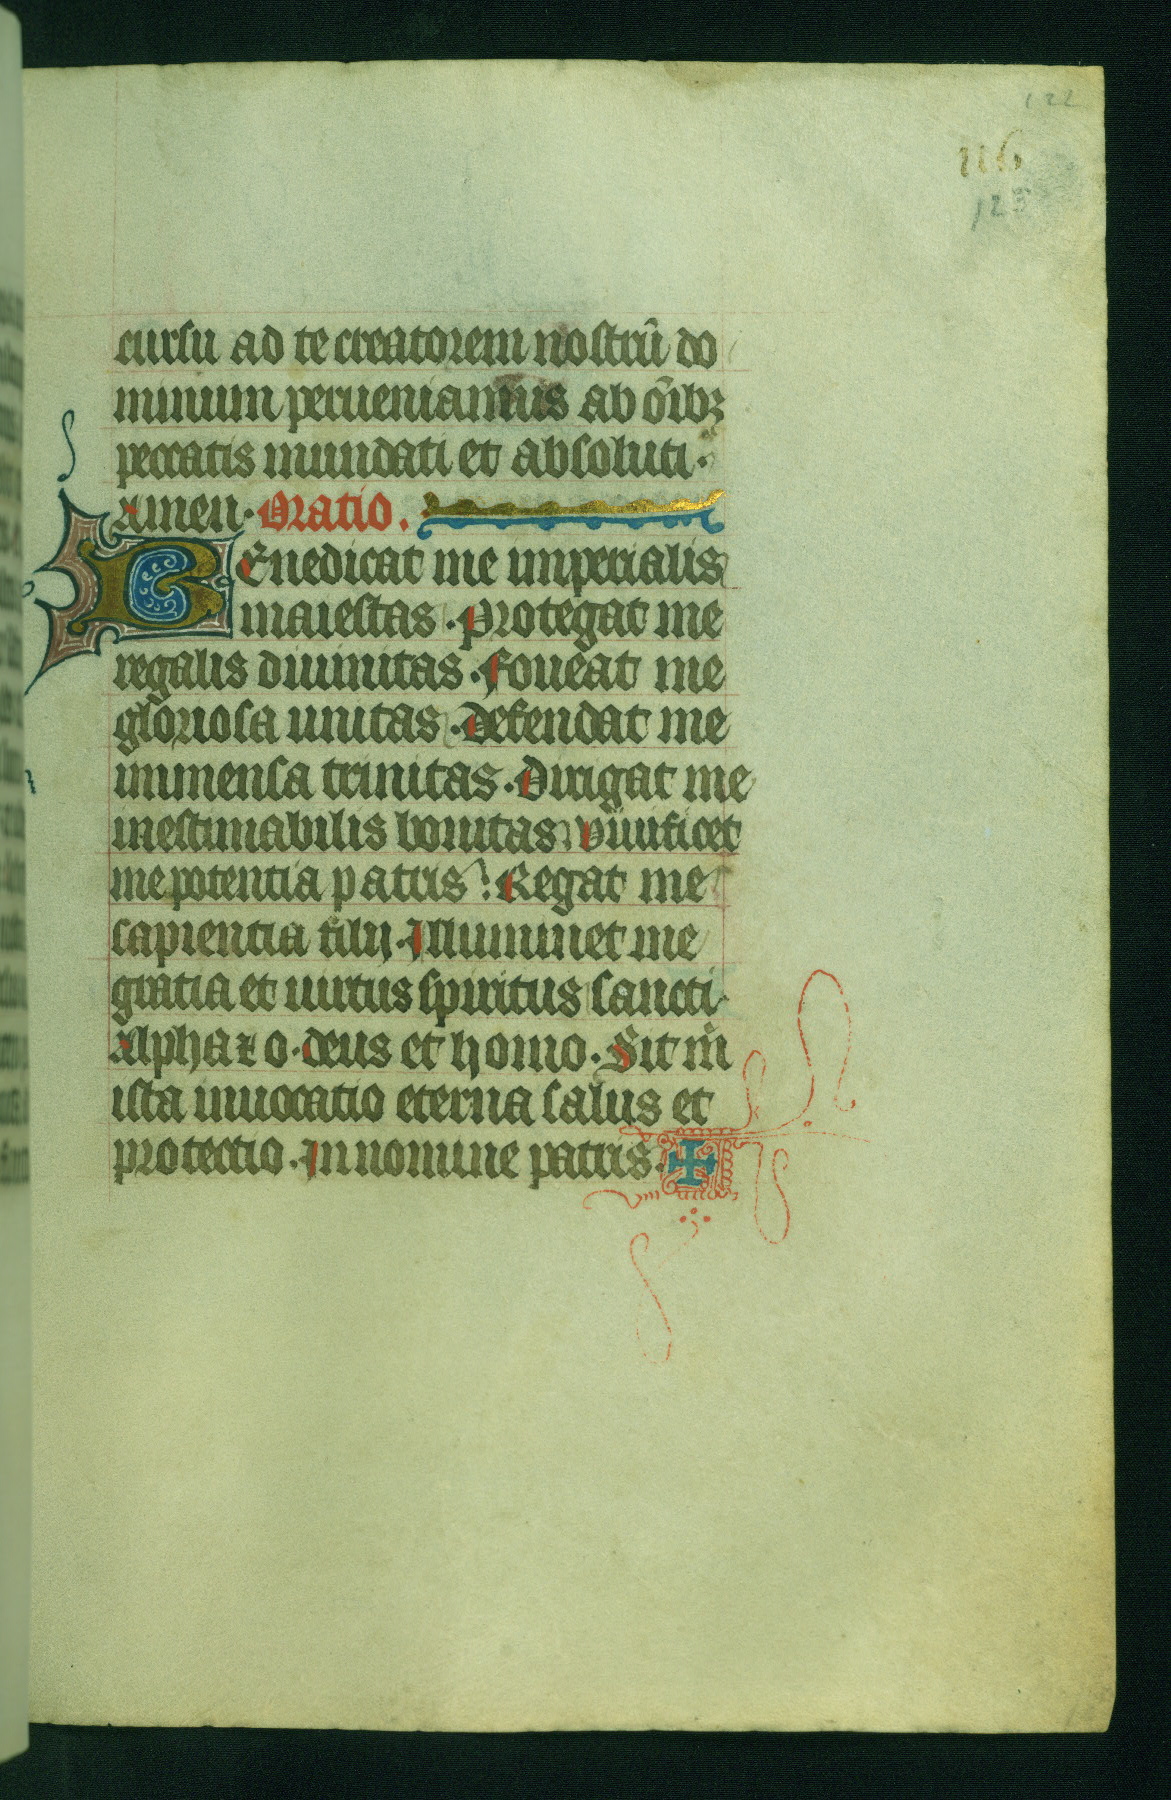 122
116
123
cursu ad te creatorem nostrū do
minum perueniamus ab oībꝫ
peccatis mundati et absoluti·
Amen· Oratio.
BEnedicat me imperialis
maiestas· Protegat me
regalis diuinitas· Foueat me
gloriosa unitas· Defendat me
immensa trinitas· Dirigat me
inestimabilis bonitas Viuificet
me potentia patris: Regat me
sapientia filij· Illuminet me
gratia et uirtus spiritus sancti·
Alpha ⁊ o· deus et homo· Sit m̄
ista inuocatio eterna salus et
protectio· In nomine patris· ✠